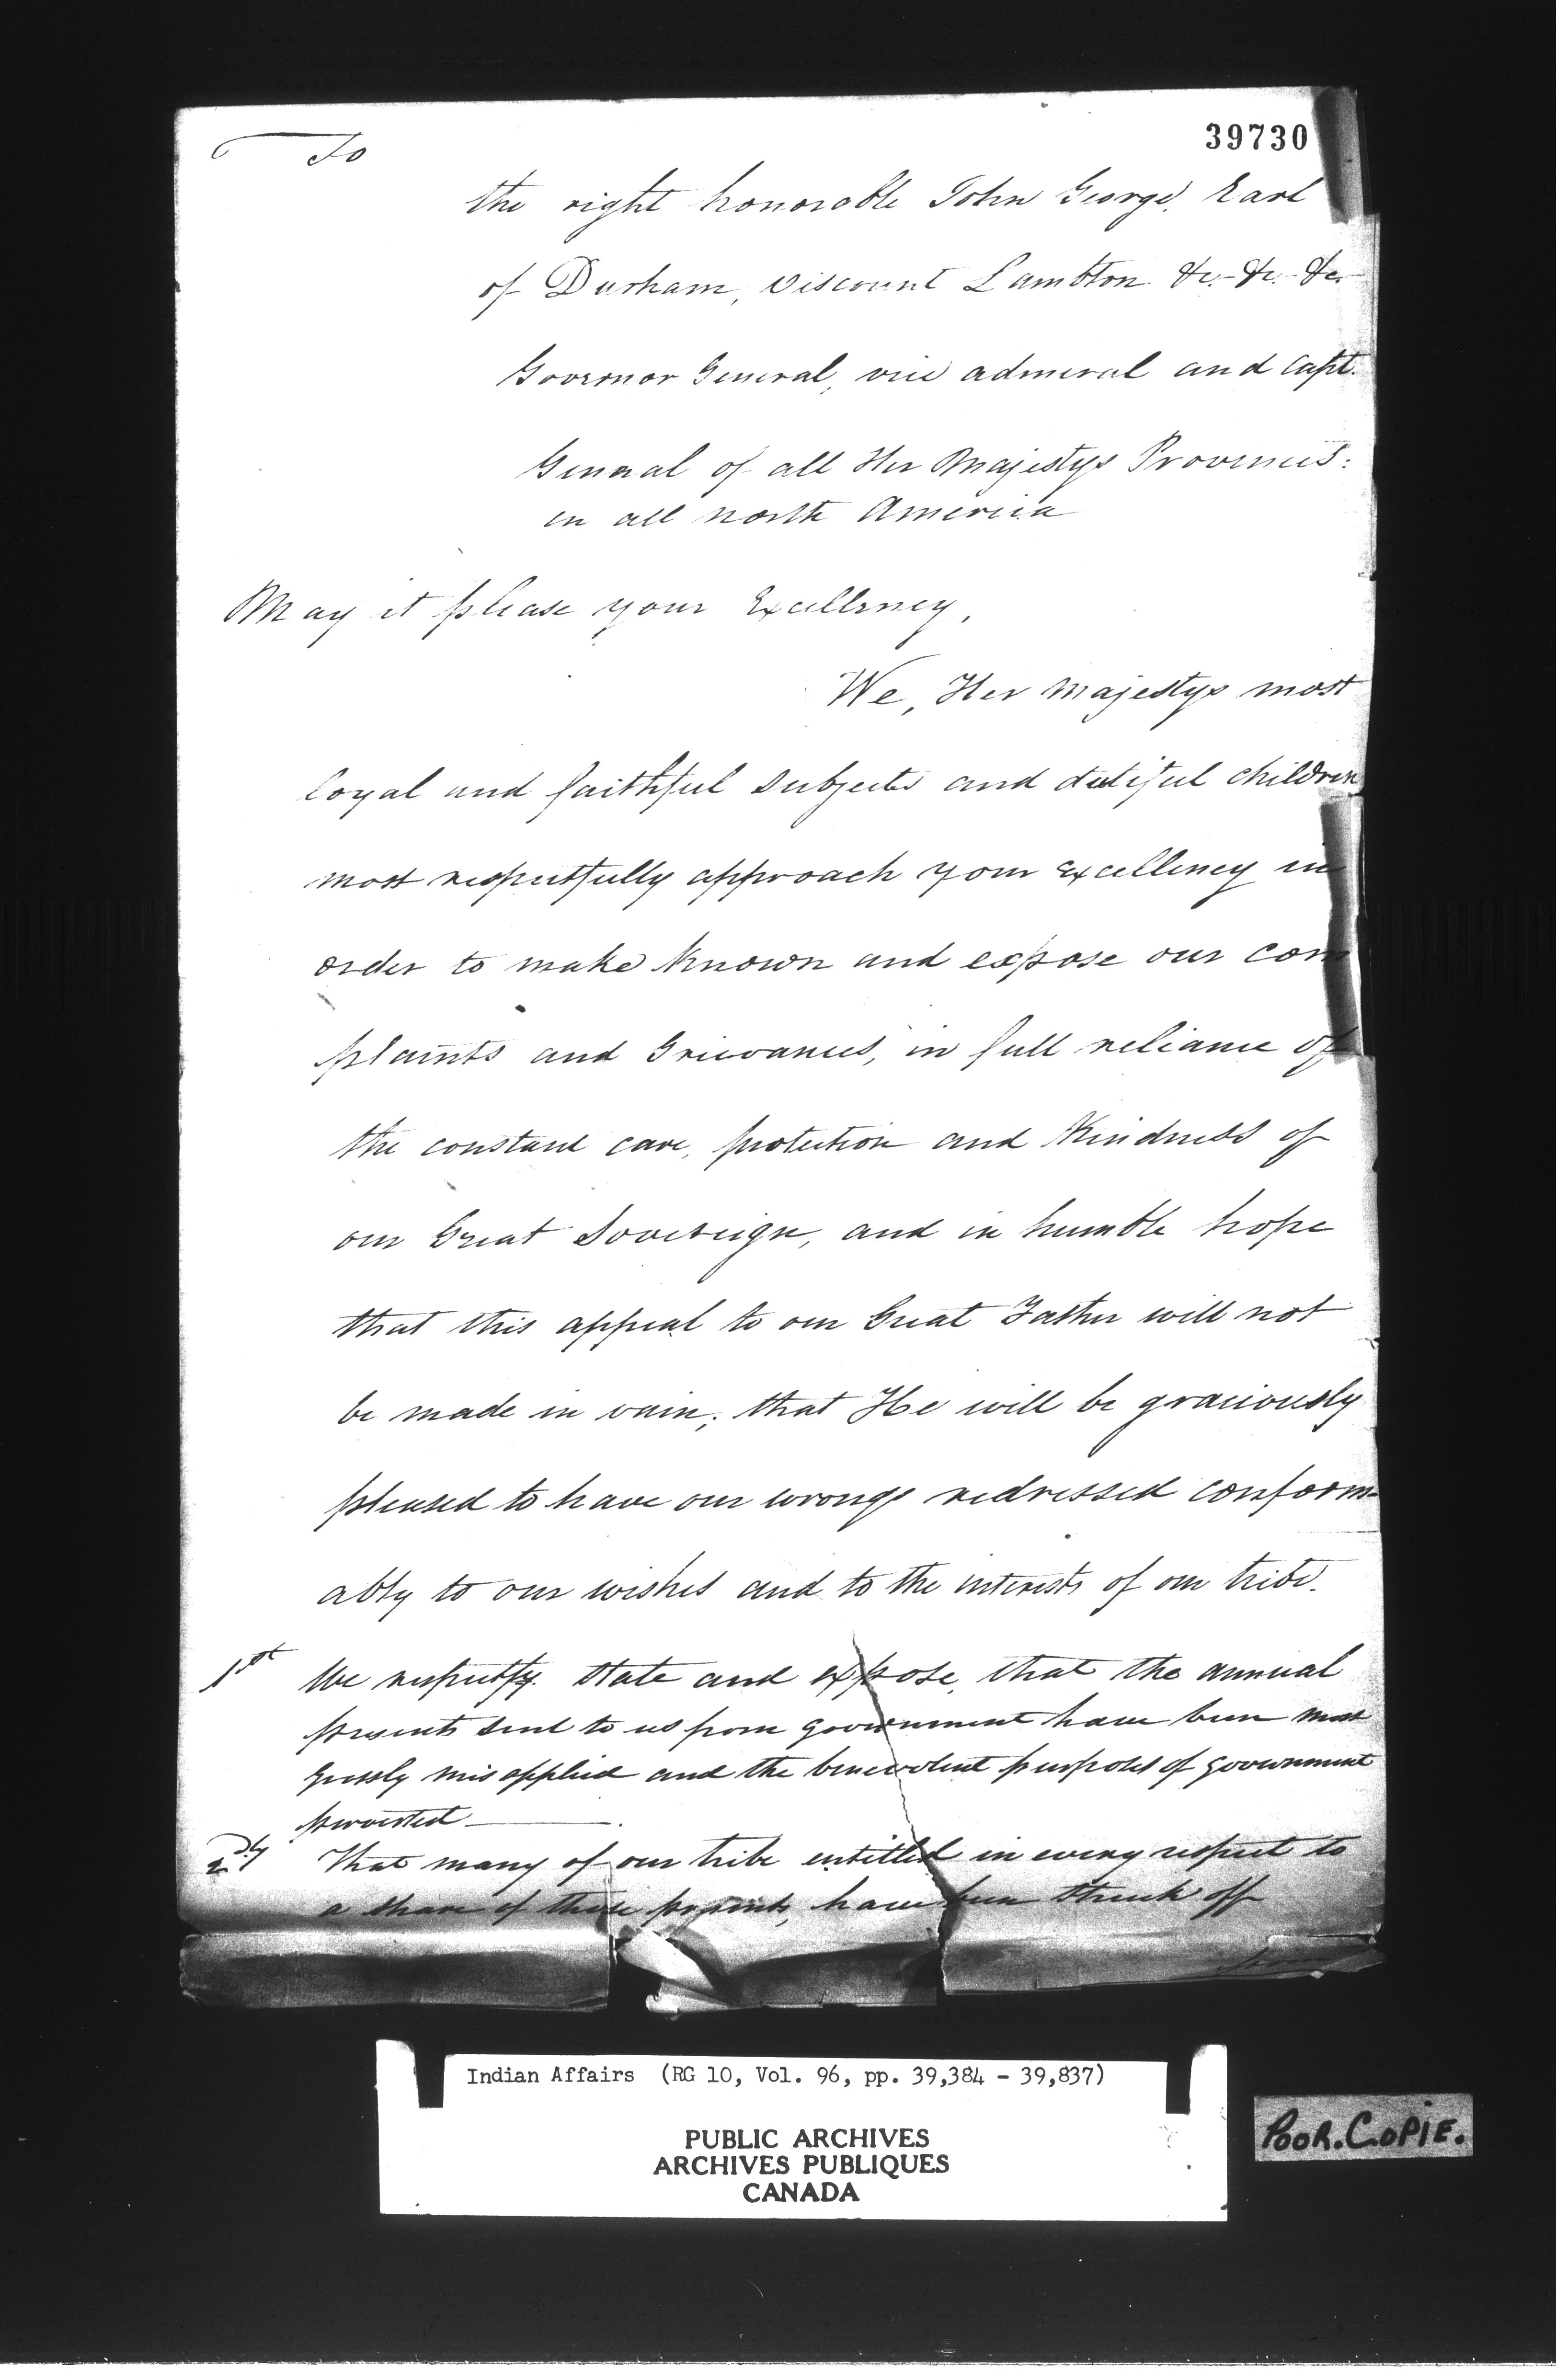 39730
To
the right honorable John George, Earl
of Durham, Viscount Lambton &c.- &c. &c.
Governor General, vice admeral and Capt.
General of all Her Majestys Provinces:
in all north America
May it please your Excellency,
We, Her Majestys most
loyal and faithful subjects and dutiful children
most respectfully approach your Excellency in
order to make known and expose our com
plaints and Grievances, in full reliance of
the constant care, protection and kindness of
our Great Sovereign, and in humble hope
that this appeal to our Great Father will not
be made in vain; that He will be graciously
pleased to have our wrongs redressed conform-
ably to our wishes and to the interests of our tribe.
1st We respectfy. State and expose, that the annual
presents sent to us from government have been most
grossly misapplied and the benevolent purposes of government
perverted
2dly That many of our tribe entitled in every respect to
a share of these presents, have been struck off
Indian Affairs (RG 10, Vol. 96, pp. 39,384 - 39,837)
PUBLIC ARCHIVES
ARCHIVES PUBLIQUES
CANADA
POOR.COPIE.